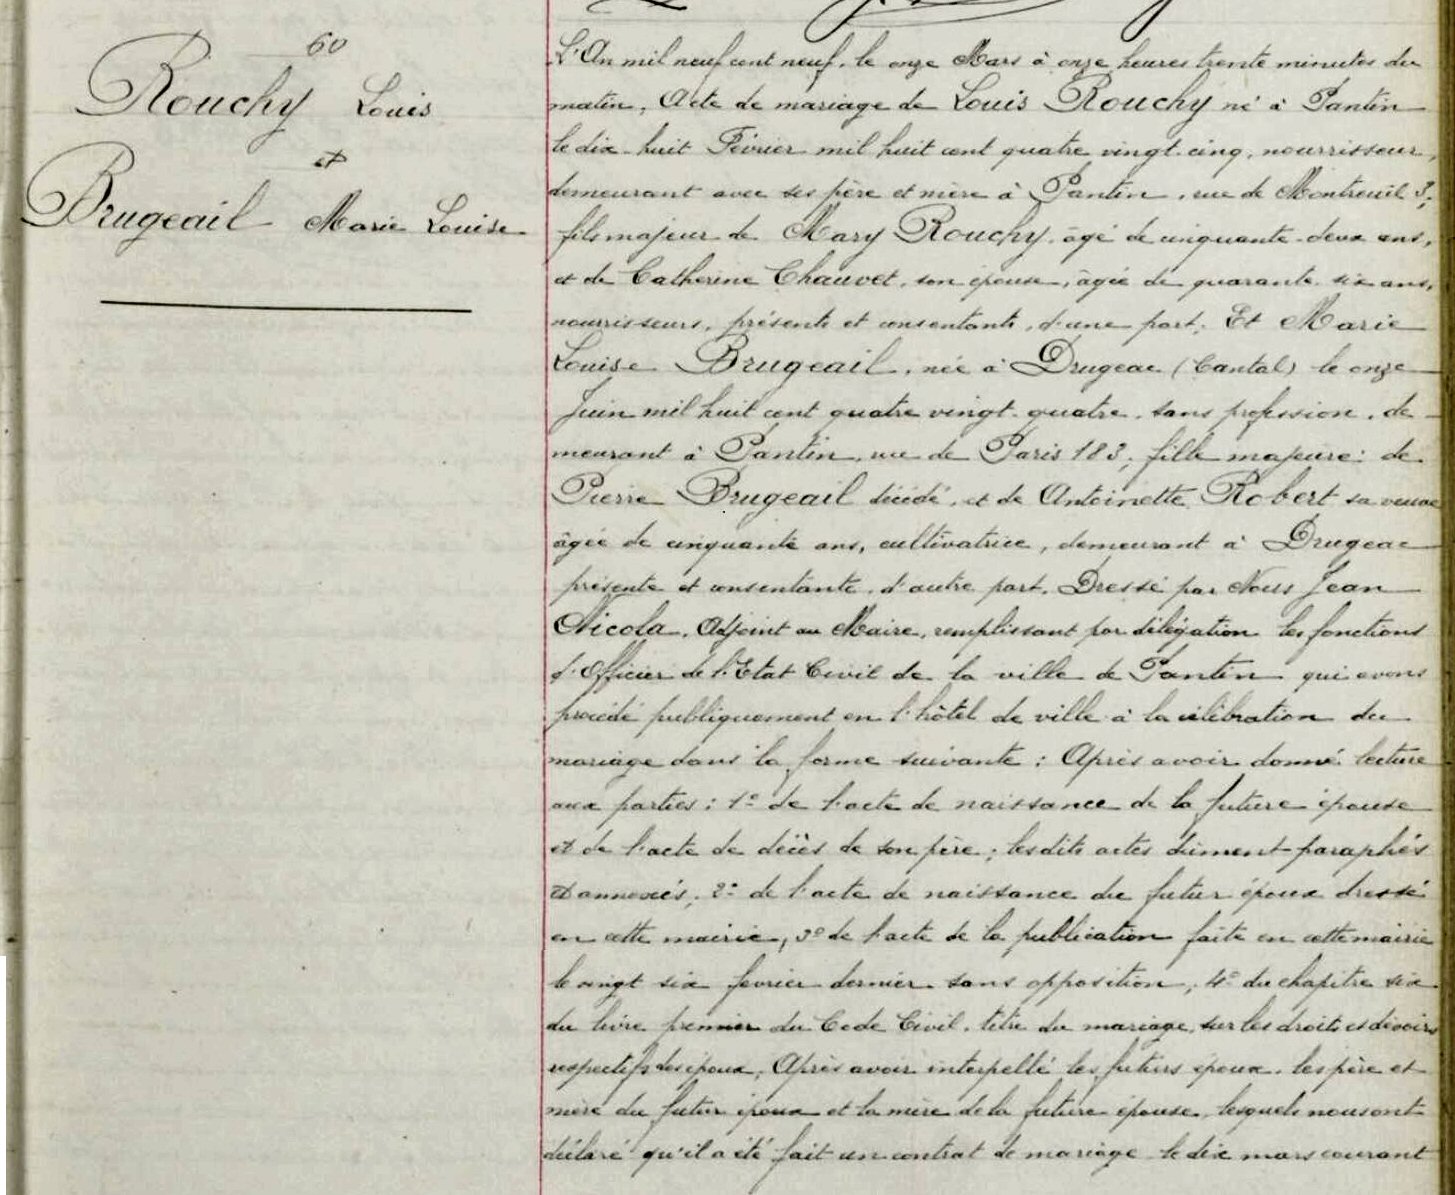 60
Rouchy Louis
et
Brugeail Marie Louise
L'An mil neuf cent neuf, le onze Mars à onze heures trente minutes du
matin, Acte de mariage de Louis Rouchy né à Pantin
le dix-huit Février mil huit cent quatre vingt-cinq, nourrisseur,
demeurant avec ses père et mère à Pantin, rue de Montreuil 3;
fils majeur de Mary Rouchy, âgé de cinquante-deux ans,
et de Catherine Chauvet, son épouse, âgée de quarante-six ans,
nourrisseurs, présents et consentants, d'une part; Et Marie
Louise Brugeail, née à Drugeac (Cantal) le onze
Juin mil huit cent quatre vingt-quatre, sans profession, de-
meurant à Pantin, rue de Paris 183; fille majeure: de
Pierre Brugeail décédé, et de Antoinette Robert sa veuve
âgée de cinquante ans, cultivatrice, demeurant à Drugeac
présente et consentante, d'autre part. Dressé par Nous Jean
Nicola, Adjoint au Maire, remplissant par délégation les fonctions
d'Officier de l'Etat Civil de la ville de Pantin qui avons
procédé publiquement en l'hôtel de ville à la célébration du
mariage dans la forme suivante: Après avoir donné lecture
aux parties: 1º de l'acte de naissance de la future épouse
et de l'acte de décès de son père; lesdits actes dûment paraphés
et annexés; 2º de l'acte de naissance du futur époux dressé
en cette mairie, 3º de l'acte de la publication faite en cette mairie
le vingt six fevrier dernier sans opposition; 4º du chapitre six
du livre premier du Code Civil, titre du mariage, sur les droits et devoirs
respectifs des époux; Après avoir interpellé les futurs époux, les père et
mère du futur époux et la mère de la future épouse, lesquels nous ont
déclaré qu'il a été fait un contrat de mariage le dix mars courant